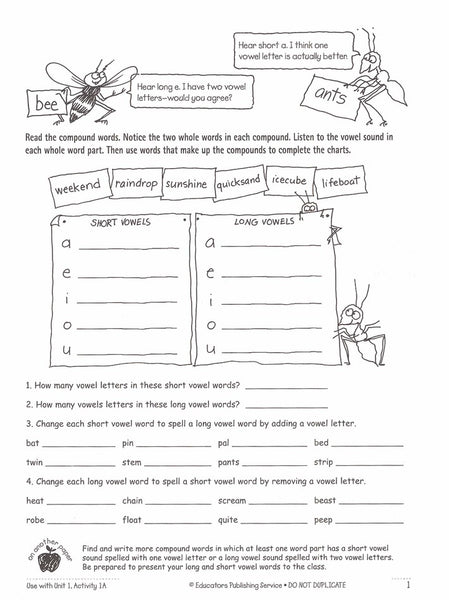 Hear short a. I think one
vowel letter is actually better.
Hear long e. I have two vowel
letters–would you agree?
bee
ants
Read the compound words. Notice the two whole words in each compound. Listen to the vowel sound in
each whole word part. Then use words that make up the compounds to complete the charts.
weekend raindrop sunshine quicksand icecube lifeboat
SHORT VOWELS LONG VOWELS
a ____________ a ____________
e ____________ e ____________
i ____________ i ____________
o ____________ o ____________
u ____________ u ____________
1. How many vowel letters in these short vowel words? ____________
2. How many vowels letters in these long vowel words? ____________
3. Change each short vowel word to spell a long vowel word by adding a vowel letter.
bat ____________ pin ____________ pal ____________ bed ____________
twin ____________ stem ____________ pants ____________ strip ____________
4. Change each long vowel word to spell a short vowel word by removing a vowel letter.
heat ____________ chain ____________ scream ____________ beast ____________
robe ____________ float ____________ quite ____________ peep ____________
on another paper
Find and write more compound words in which at least one word part has a short vowel
sound spelled with one vowel letter or a long vowel sound spelled with two vowel letters.
Be prepared to present your long and short vowel words to the class.
Use with Unit 1, Activity 1A © Educators Publishing Service • DO NOT DUPLICATE 1